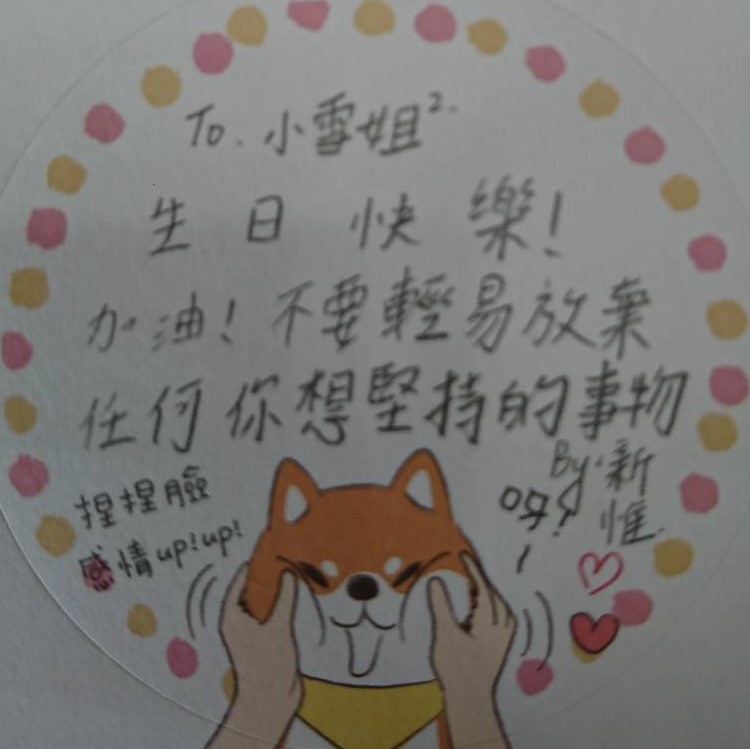 To. 小雪姐².
生日快樂!
加油!不要輕易放棄
任何你想堅持的事物
By.新惟
捏捏臉
感情up!up!